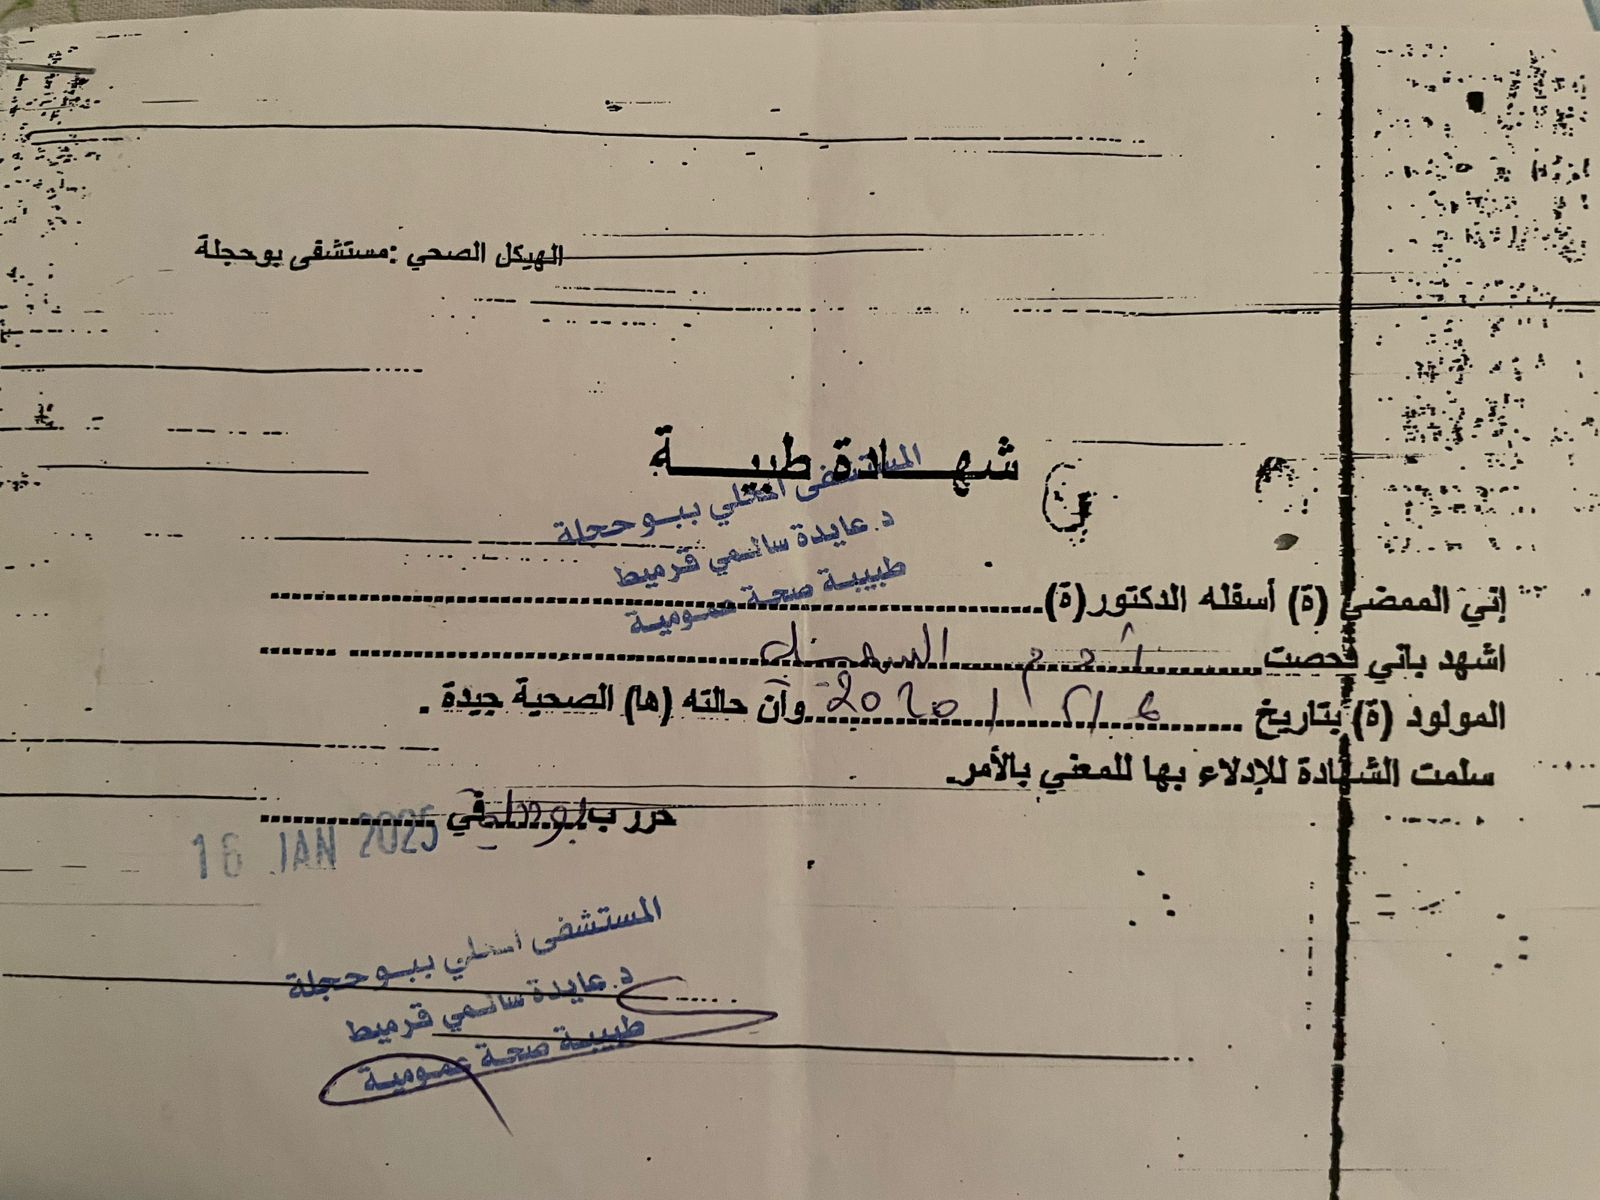 الهيكل الصحي :مستشفى بوحجلة
شهـــادة طبيـــة
المستشفى المحلي ببوحجلة
د.عايدة سالمي قرميط
طبيبة صحة عمومية
إني الممضي (ة) أسفله الدكتور(ة)
اشهد باني فحصت
المولود (ة) بتاريخ 2020 وأن حالته (ها) الصحية جيدة .
سلمت الشهادة للإدلاء بها للمعني بالأمر.
حرر ب بوحجلة في 16 JAN 2025
المستشفى المحلي ببوحجلة
د.عايدة سالمي قرميط
طبيبة صحة عمومية